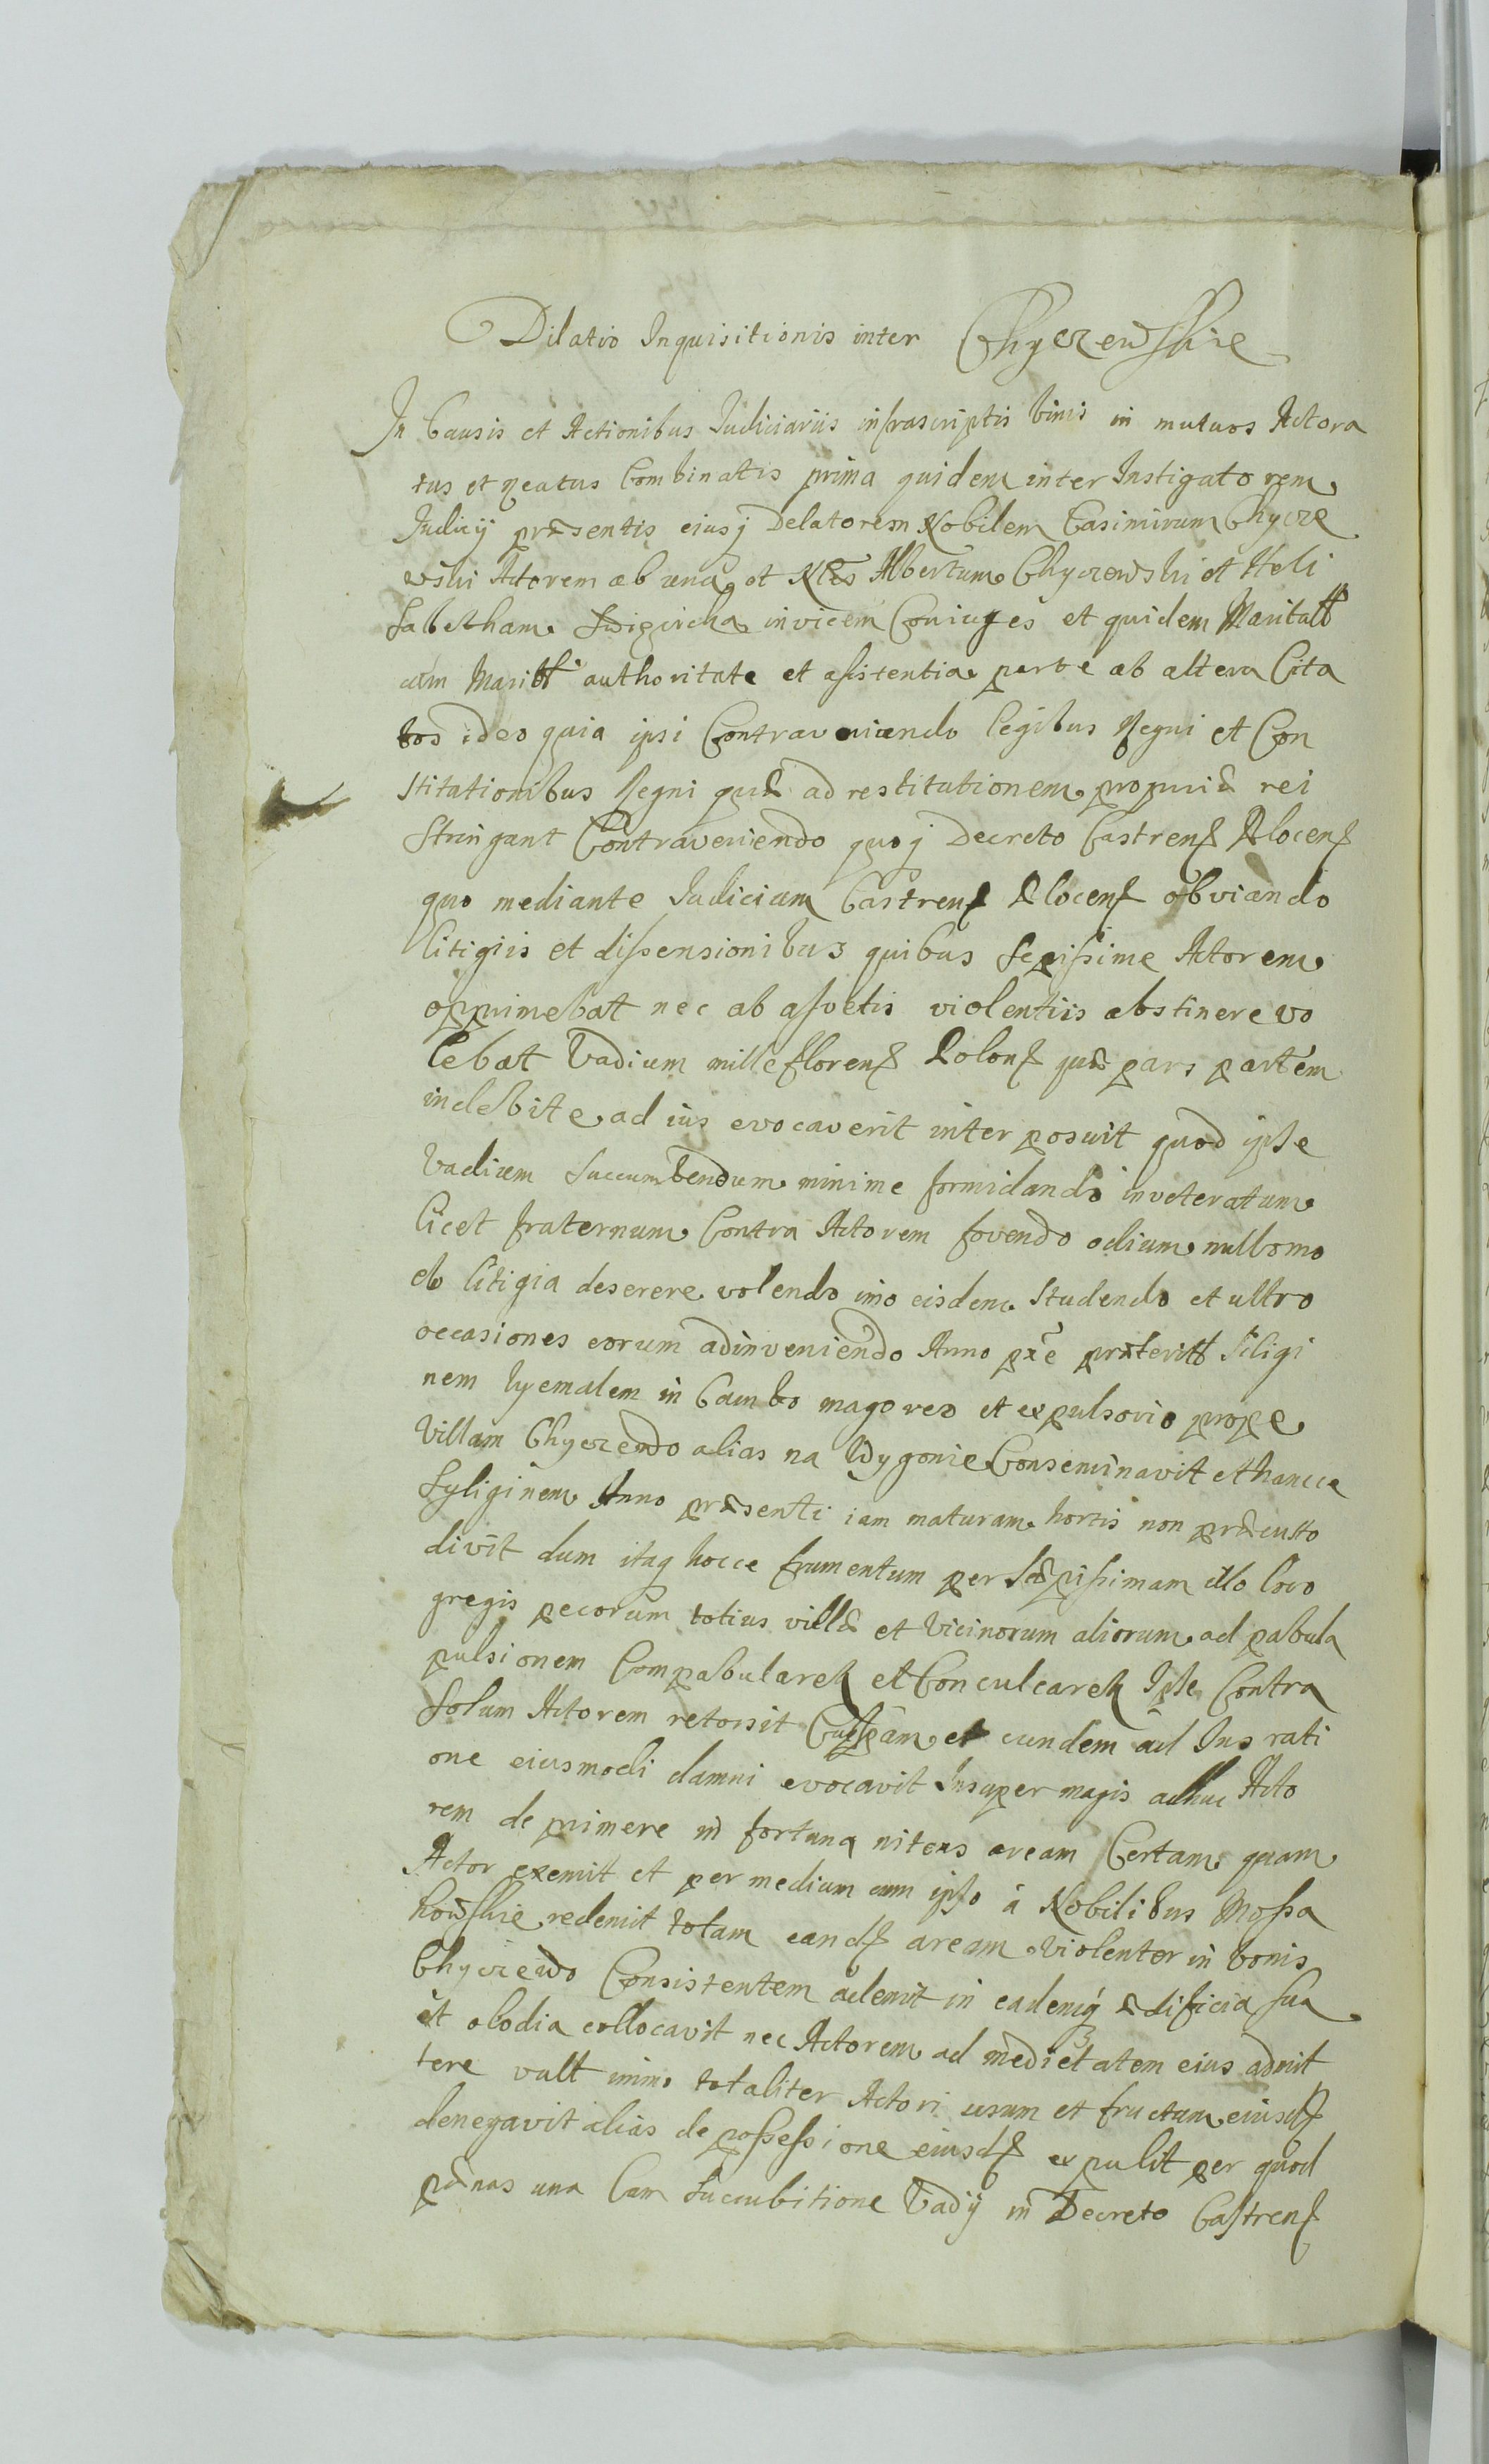 Dilatio Inquisitionis inter Chyczewskie
In Causis et Actionibus Iudiciariis infrascriptis binis in mutuos Actora
tus et Reatus Combinatis prima quidem inter Instigatorem
Iudicij præsentis eiusq Delatorem Nobilem Casimirum Chycze
wski Actorem ab una et Nles Albertum Chyczewski et Heli
sabetham invicem Coniuges et quidem Maritatt
cum Maritt authoritate et assistentia parte ab altera Cita
tos ideo quia ipsi Contraveniendo legibus Regni et Con
stitutionibus Regni quæ ad restitutionem propriæ rei
stringunt Contraveniendo quoq Decreto Castrens Plocens
quo mediante Iudicium Castrens Plocens obviando
litigiis et dissensionibus quibus sepissime Actorem
opprimebat nec ab assvetis violentiis abstinere vo
lebat Vadium mille florens Polons quæ pars partem
indebite ad ius evocaverit interposuit quod ipse
Vadium succumbendum minime formidando inveteratum
licet fraternum Contra Actorem fovendo odium nullomo
do litigia deserere volendo imo eisdem studendo et ultro
occasiones eorum adinveniendo Anno pxe præteritt siligi
nem hyemalem in Campo magoreo et expulsorio prope
Villam Chyczewo alias na Wygonie Conseminavit et hancce
syliginem Anno præsenti iam maturam hortis non præcusto
divit dum itaq hocce frumentum per sæpissimam illo loco
gregis pecorum totius villæ et Vicinorum aliorum ad pabula
pulsionem Compabularet et Conculcaret Ipse Contra
solum Actorem retorsit Culpam et eundem ad Ius rati
one eiusmodi damni evocavit Insuper magis adhuc Acto
rem deprimere in fortuna nitens aream Certam quam
Actor exemit et per medium cum ipso à Nobilibus Mossa
kowskie redemit totam eands aream violenter in bonis
Chyczewo Consistentem ademit in eademq ædificia sua
et alodia collocavit nec Actorem ad medietatem eius admit
tere vult immo totaliter Actori usum et fructum eiusds
denegavit alias de possessione eiusds expulit per quod
pænas una Cum succubitione Vadij in Decreto Castrens